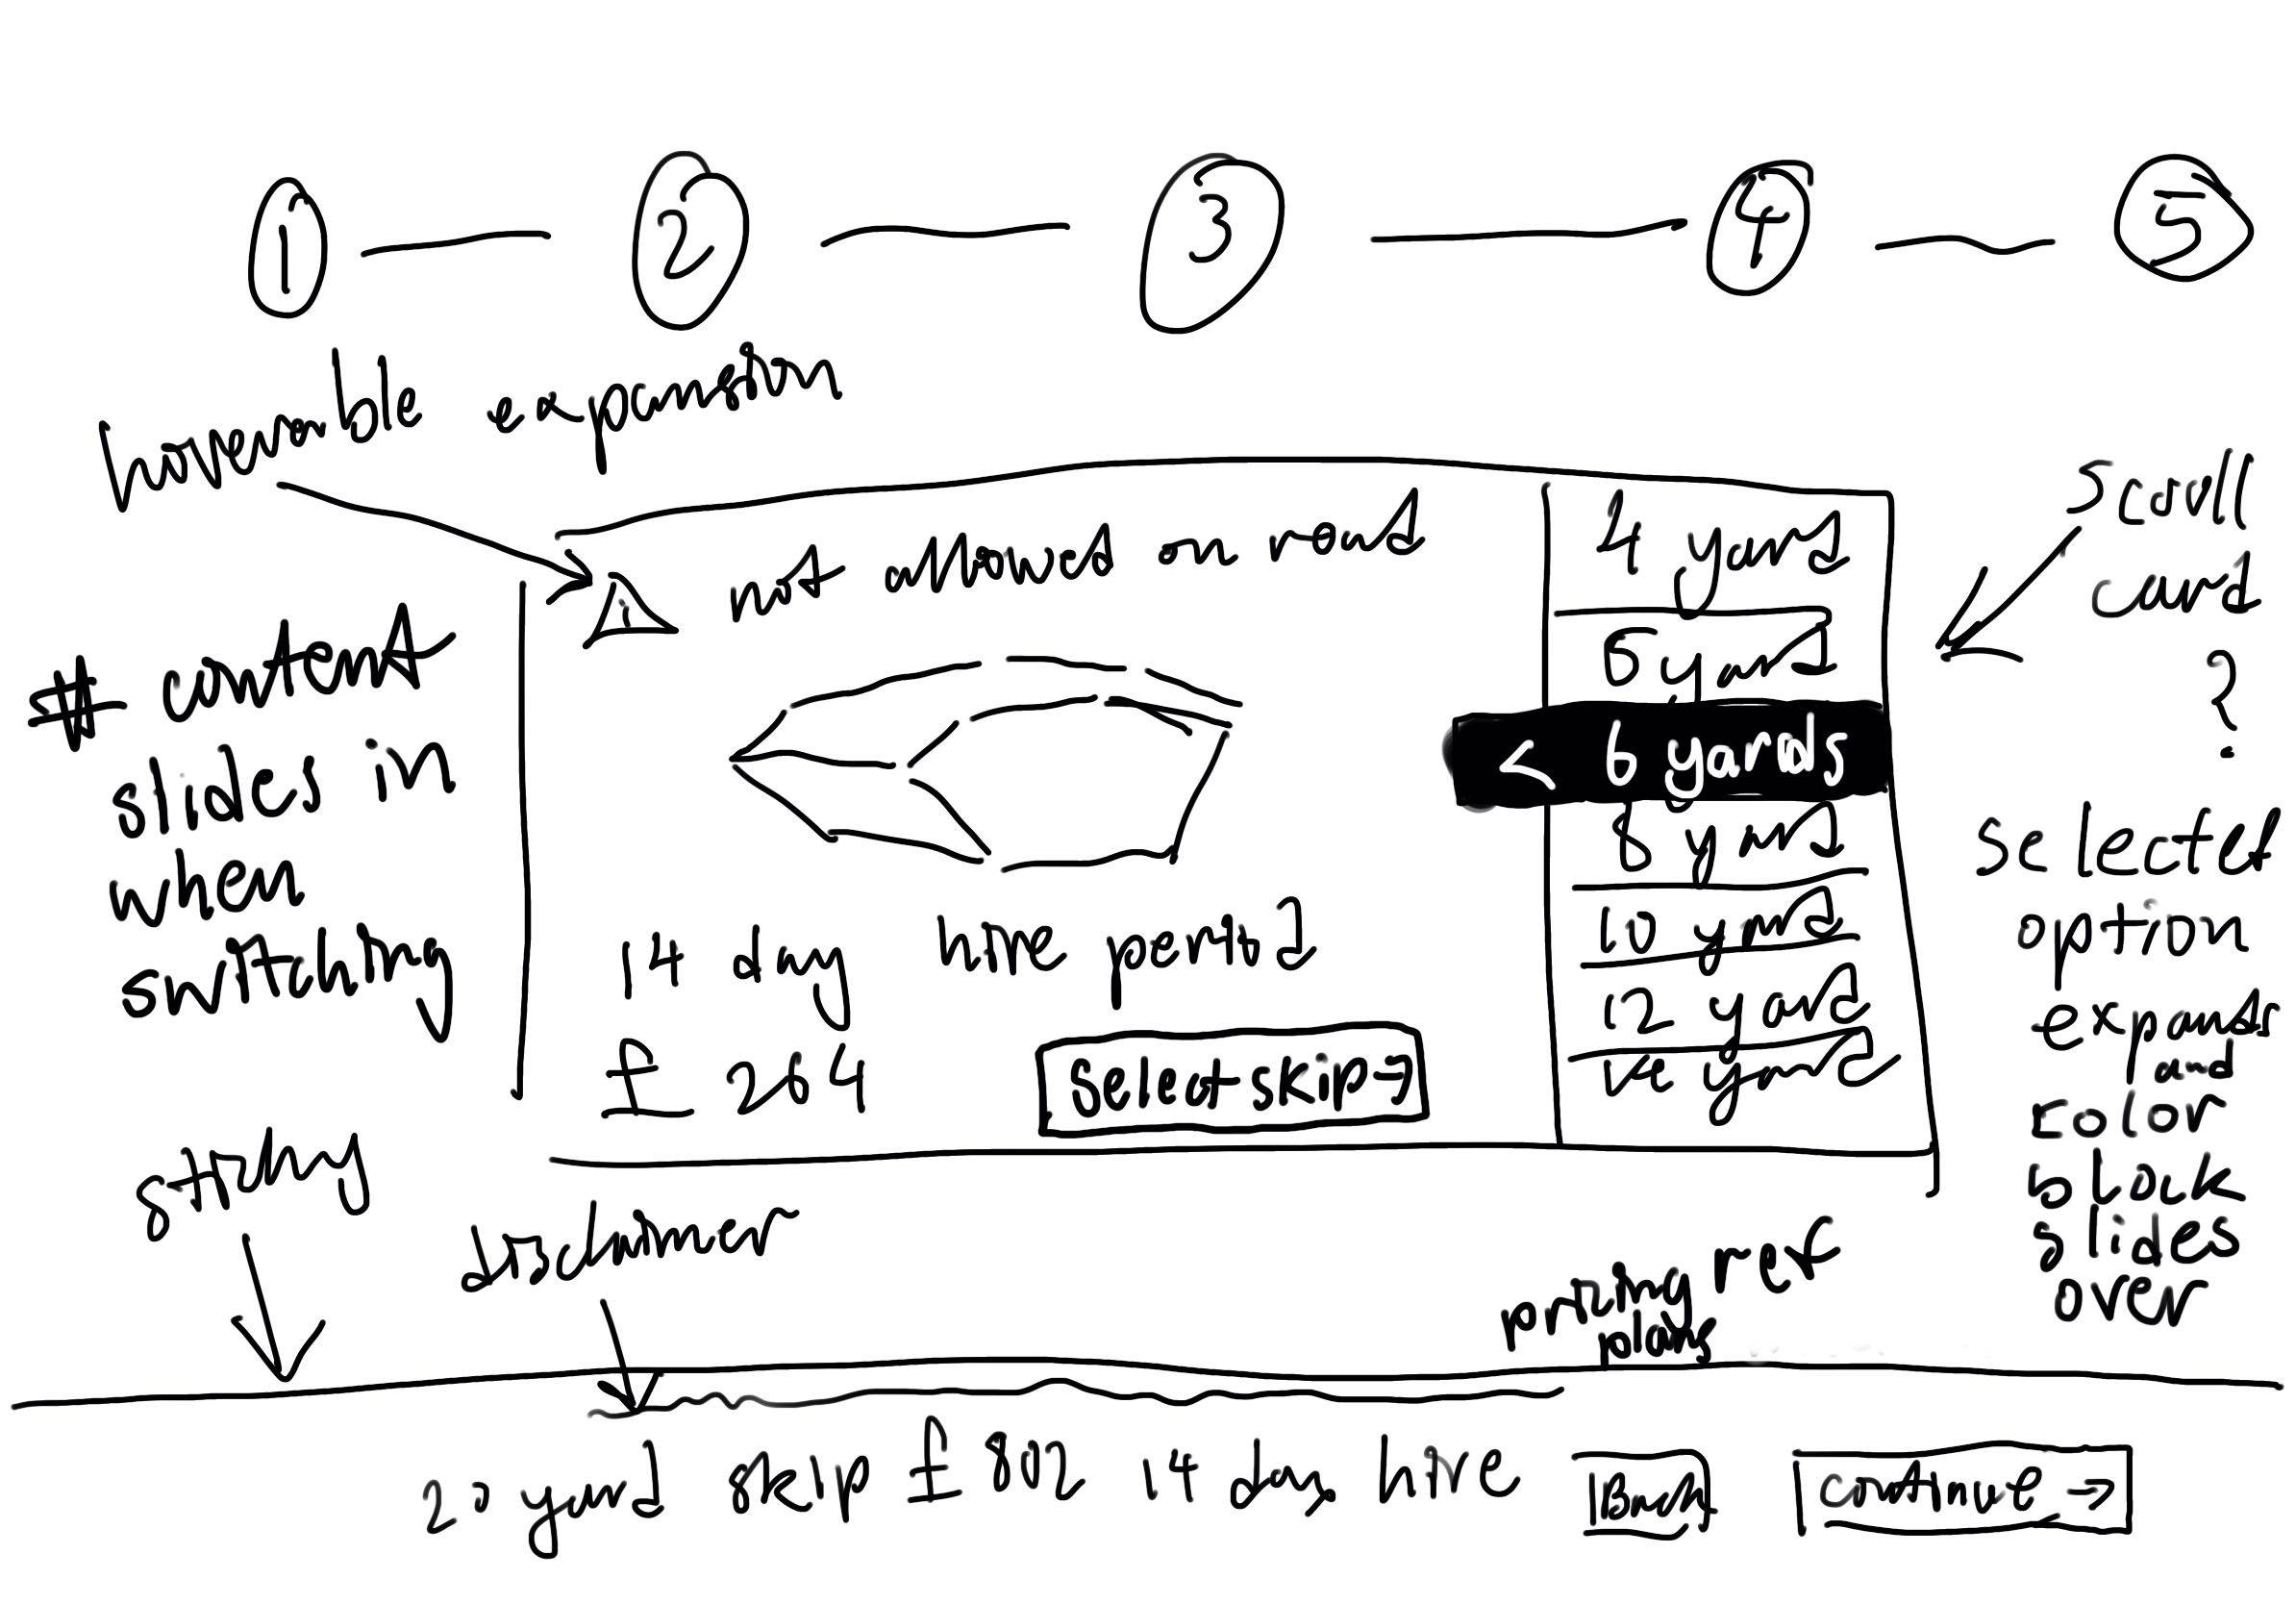 1 2 3 4 5
hoverable expansion
not allowed on road
# content
slides in
when
switching
14 day hire period
£ 264
Select skip →
4 yard
6 yard
< 6 yards
8 yard
10 yard
12 yard
yard
scroll
card
?
selected
option
expands
and
color
block
slides
over
disclaimer
pricing ref
plans
20 yard skip £ 802 14 day hire
Back
continue →